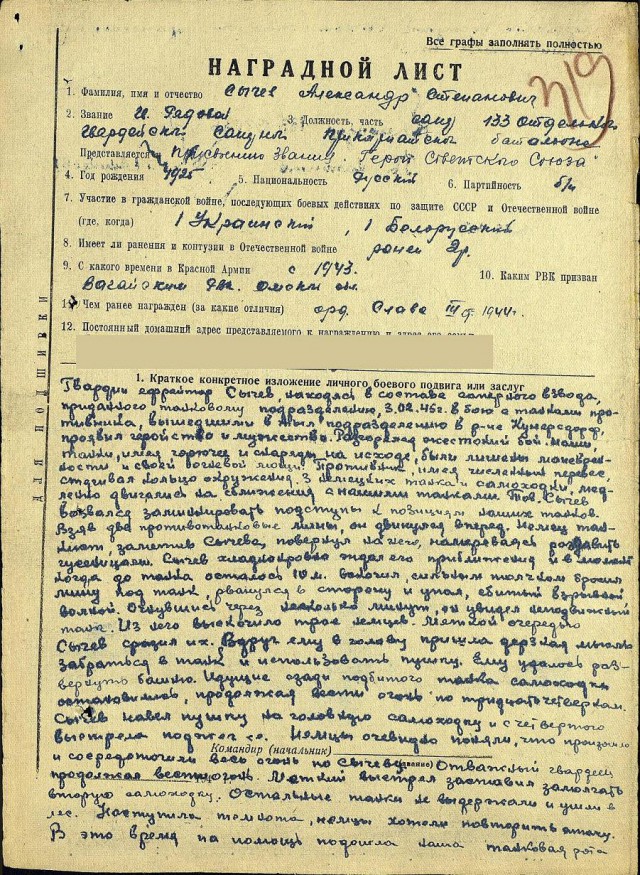 Все графы заполнять полностью
НАГРАДНОЙ ЛИСТ
319
1. Фамилия, имя и отчество Сычев Александр Степанович
2. Звание Рядовой 3. Должность, часть 133 Отдельного
Гвардейск. батальона
Представляется к Присвоению Звания "Герой Советского Союза"
4. Год рождения 1925 5. Национальность Русский 6. Партийность б/п
7. Участие в гражданской войне, последующих боевых действиях по защите СССР и Отечественной войне
(где, когда) 1 Украинский, 1 Белорусский
8. Имеет ли ранения и контузии в Отечественной войне ранен
9. С какого времени в Красной Армии с 1943. 10. Каким РВК призван
Вагайским
11. Чем ранее награжден (за какие отличия) орд. Слава III 1944г.
12. Постоянный домашний адрес представляемого к награждению и адрес его семьи
ДЛЯ ПОДШИВКИ
1. Краткое конкретное изложение личного боевого подвига или заслуг
Гвардии ефрейтор Сычев, находясь в составе саперного взвода,
приданного танковому подразделению, 3.02.45г. в бою с танками про-
тивника, вышедшими в тыл подразделению в р-не Кунерсдорф,
проявил геройство и мужество. Разгорелся жестокий бой. Наши
танки, имея горючее и снаряды на исходе, были лишены маневрен-
ности и своей огневой мощи. Противник, имея численный перевес,
стягивал кольцо окружения. 3 немецких танка и самоходки, мед-
ленно двигались на сближение с нашими танками. Тов. Сычев
вызвался заминировать подступы к позициям наших танков.
Взяв две противотанковые мины, он двинулся вперед. Немец тан-
кист, заметив Сычева, повернул на него, намереваясь раздавить
гусеницами. Сычев хладнокровно ждал его приближения и в момент
когда до танка осталось 10 м. вскочил, сильным толчком бросил
мину под танк, рванулся в сторону и упал, сбитый взрывной
волной. Очнувшись через несколько минут, он увидел неподвижный
танк. Из него выскочило трое немцев. Меткой очередью
Сычев сразил их. Вдруг ему в голову пришла дерзкая мысль
забраться в танк и использовать пушку. Ему удалось раз-
вернуть башню. Идущие сзади подбитого танка самоходки
остановились, продолжая вести огонь по тридцатьчетверкам.
Сычев навел пушку на головную самоходку и с четвертого
выстрела поджег ее. Немцы очевидно поняли, что произошло
Командир (начальник)
и сосредоточили весь огонь по Сычеву. (звание) Отважный гвардеец
продолжал вести огонь. Меткий выстрел заставил замолчать
вторую самоходку. Остальные танки не выдержали и ушли в
лес. Наступила темнота, немцы хотели повторить атаку.
В это время на помощь подошла наша танковая рота